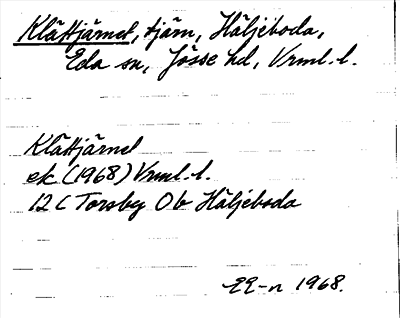 Klättjärnet, tjärn, Häljeboda,
Eda sn, Jösse hd, Vrml. l.
Klättjärnet
ek (1968) Vrml. l.
12 C Torsby 0b Häljeboda
1968.